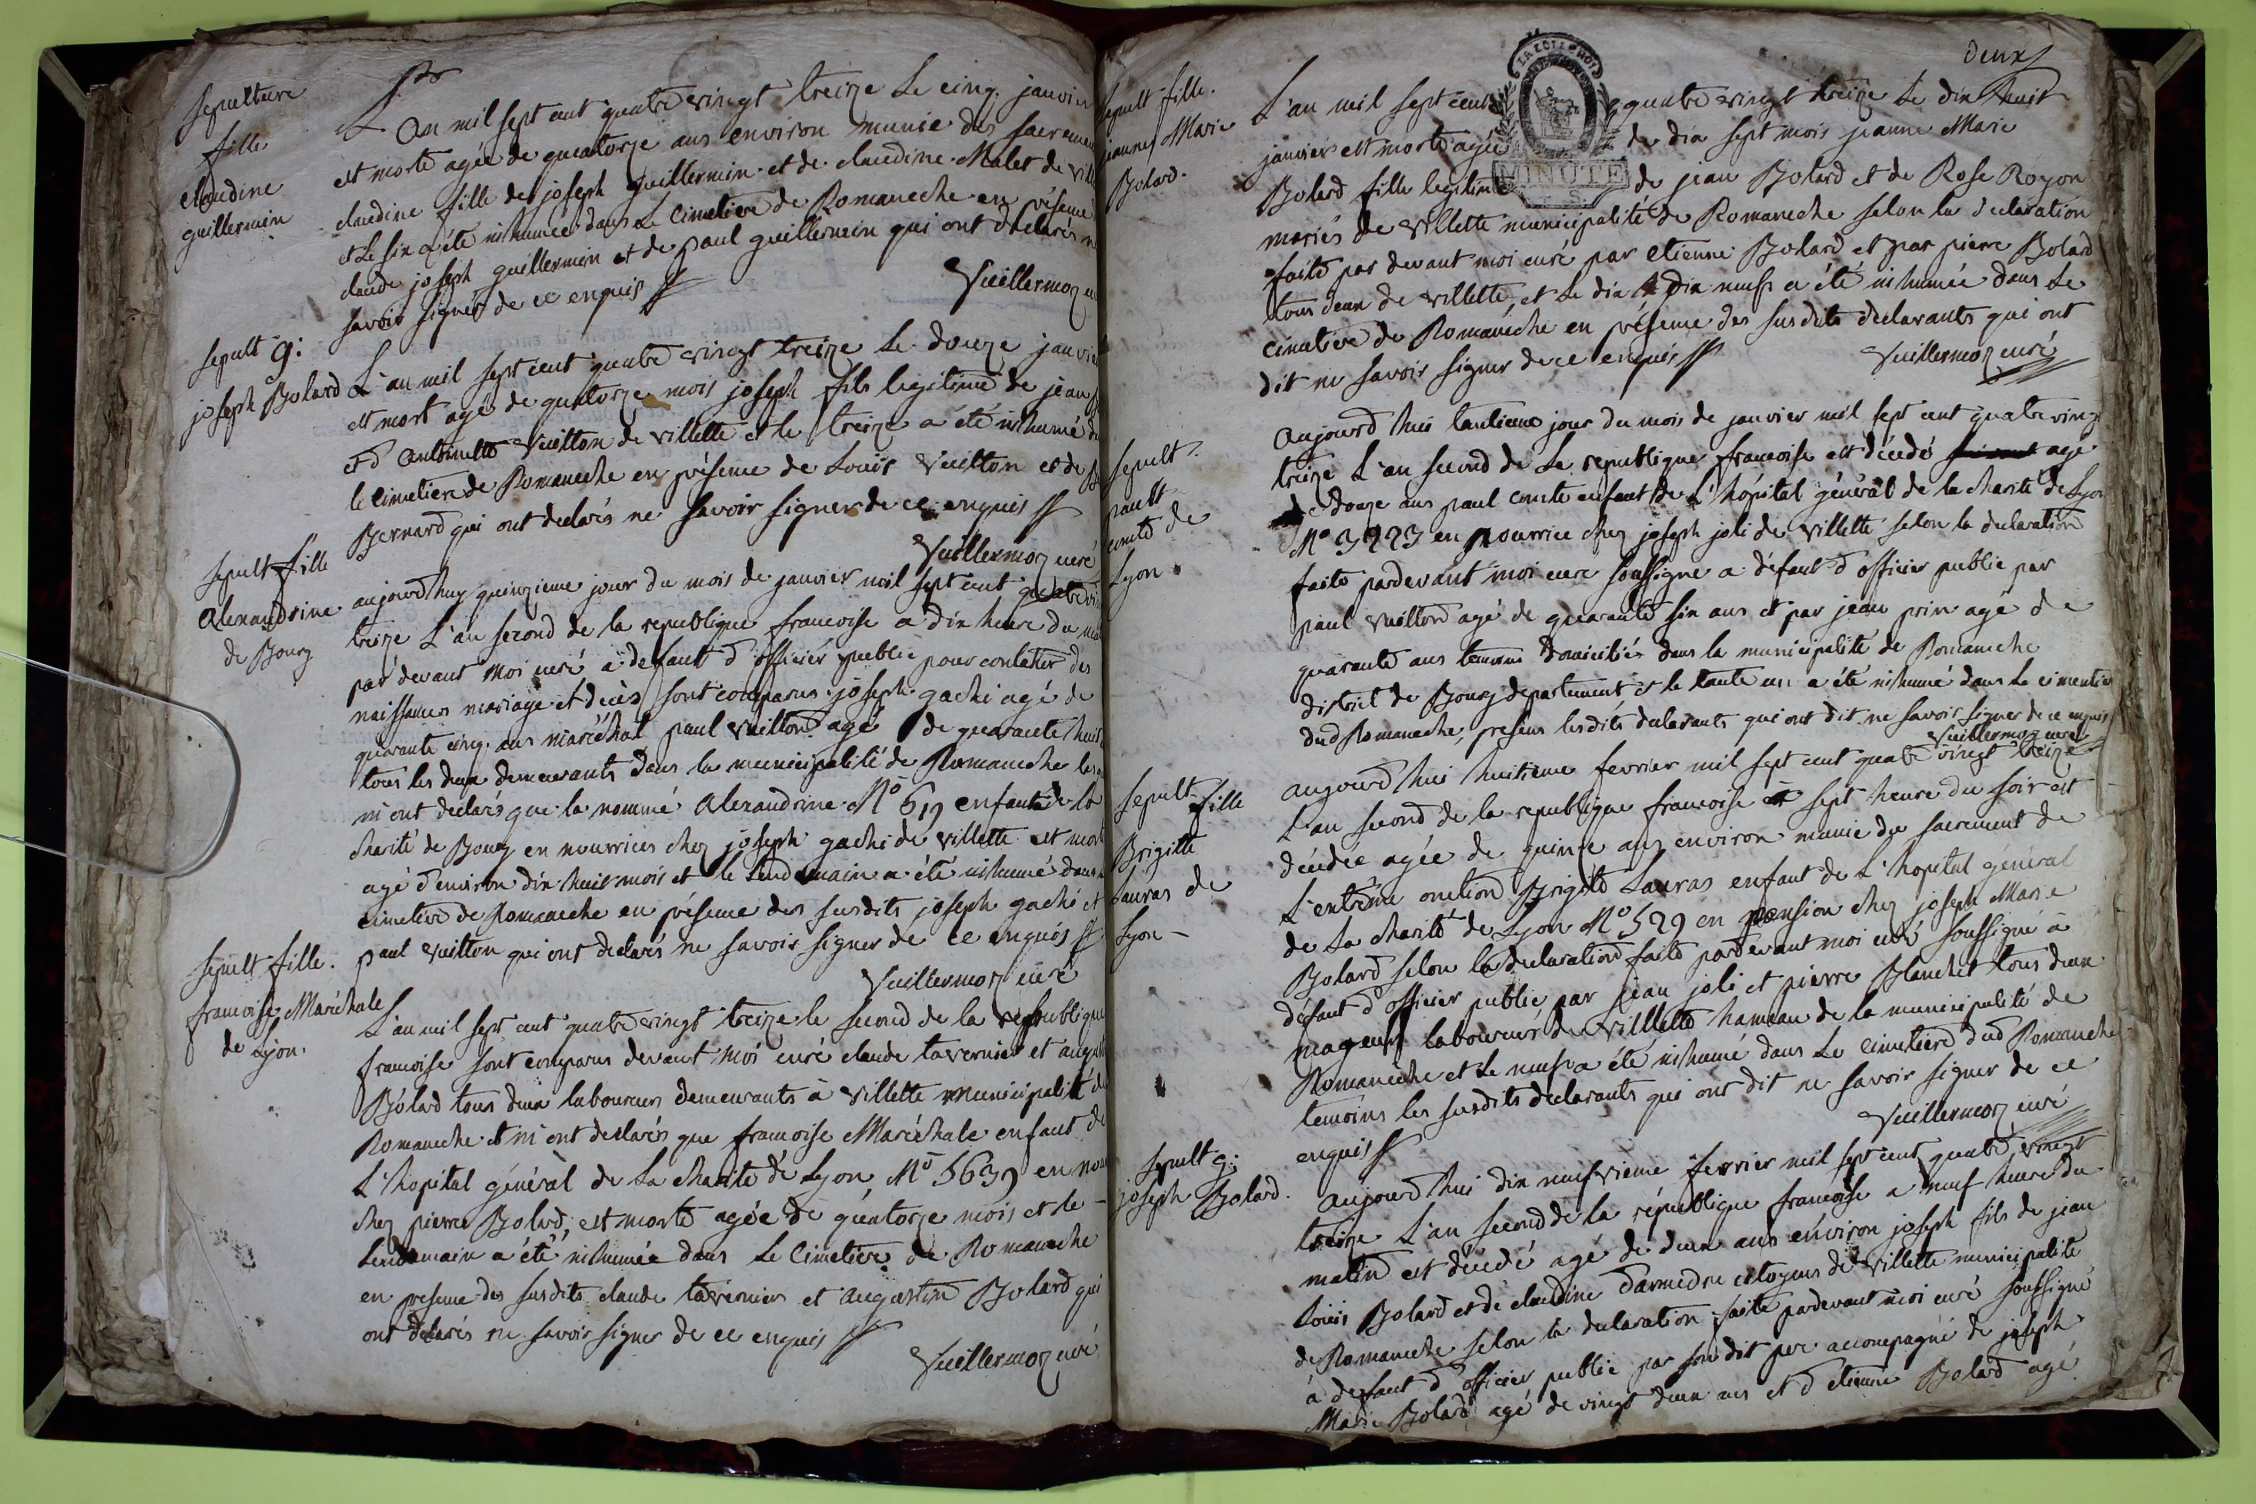 sepulture
fille
claudine
guillermin
L'an mil sept cent quatre vingt treize Le cinq janvier
est morte agée de quatorze ans environ munie des sacremen
claudine fille de joseph guillermin et de claudine Malet de vill
et Le six a été inhumée dans Le cimetiere de Romaneche en présence
claude joseph guillermin et de paul guillermin qui ont declarés n
savoir signer de ce enquis
Vuillermoz cu
sepult g:
joseph Bolard
L'an mil sept cent quatre vingt treize Le douze janvie
est mort agé de quatorze mois joseph fils legitime de jean
et d antoinette Vuitton de villette et le treize a été inhumé d
le cimetiere de Romaneche en présence de Louis Vuitton et de
Bernard qui ont declarés ne savoir signer de ce enquis
Vuillermoz curé
sepult fille
Alexandrine
de Bourg
aujourdhuy quinzieme jour du mois de janvier mil sept cent quatre vin
treize L'an second de la republique francoise a dix heure du ma
par devant moi curé a defaut d'officier public pour constater des
naissances mariage et decès sont comparus joseph gachi agé de
quarante cinq ans maréchal paul Vuitton agé de quarante huit
tous les deux demeurants dans la municipalité de Romaneche les
m'ont declarés que la nommé Alexandrine No 619 enfant de la
charité de Bourg en nourrices chez joseph gachi de villette est mor
agé d'environ dix huit mois et le lendemain a été inhumé dans
cimetiere de Romaneche en présence des susdits joseph gachi et
paul Vuitton qui ont declarés ne savoir signer de ce enquis
Vuillermoz curé
sepult fille.
francoise Maréchale
de Lyon.
L'an mil sept cent quatre vingt treize le second de la republique
francoise sont comparus devant moi curé claude tavernier et august
Bolard tous deux laboureurs demeurants à villette municipalité d
Romaneche et m'ont declarés que francoise Maréchale enfant de
L'hopital général de La charité de Lyon No 5639 en nour
chez pierre Bolard, est morte agée de quatorze mois et le
Lendemain a été inhumée dans Le Cimetiere de Romaneche
en presence des susdits claude tavernier et augustin Bolard qui
ont declarés ne savoir signer de ce enquis
Vuillermoz curé
deux
sepult fille.
jeanne Marie
Bolard.
L'an mil sept cent quatre vingt treize Le dix huit
janvier est morte agée de dix sept mois jeanne Marie
Bolard fille legitime de jean Bolard et de Rose Royon
LA LOI LE ROI
MINUTE
mariés de villette municipalité de Romaneche selon la declaration
faite par devant moi curé par etienne Bolard et par pierre Bolard
tous deux de villette, et Le dix neuf a été inhumée dans Le
cimetiere de Romanéche en présence des susdits declarants qui ont
dit ne savoir signer de ce enquis
Vuillermoz curé
sepult.
paul
comte de
Lyon
aujourdhui tantieme jour du mois de janvier mil sept cent quatre ving
treize L'an second de Le republique francoise est décédé agé
de douze ans paul comte enfant de L'hôpital général de la charité de Lyon
No 3223 en nourrice chez joseph joli de villette selon la declaration
faite pardevant moi curé soussigné a défaut d'officier public par
paul Vuitton agé de quarante six ans et par jean prin agé de
quarante ans temoins domiciliés dans la municipalité de Romaneche
district de Bourg departement et le tante un a été inhumé dans Le cimetiere
dud Romaneche, presens lesdits declarants qui ont dit ne savoir signer de ce enquis
Vuillermoz curé
sepult fille
Brigitte
Lauras de
Lyon
aujourd hui huitieme fevrier mil sept cent quatre vingt treize
L'an second de la republique francoise a sept heure du soir est
décédée agée de quinze ans environ munie du sacrement de
L'extrême onction Brigitte Lauras enfant de L'hopital général
de La charité de Lyon No 529 en pension chez joseph Marie
Bolard selon la declaration faite pardevant moi curé soussigné à
défaut d'officier public par jean joli et pierre Blanchet tous deux
mageurs laboureurs du Villette hameau de la municipalité de
Romanèche et Le neuf a été inhumé dans Le cimetiere dud Romaneche
temoins les susdits declarants qui ont dit ne savoir signer de ce
enquis
Vuillermoz curé
sepult g:
joseph Bolard.
aujourd hui dix neufvieme fevrier mil sept cent quatre vingt
treize L'an second de la république francoise a neuf heure du
matin est décédé agé de deux ans environ joseph fils de jean
Louis Bolard et de claudine citoyens de villette municipalité
de Romaneche selon la declaration faite pardevant moi curé soussigné
à defaut d'officier public par son dit pere accompagné de joseph
Marie Bolard agé de vingt deux ans et d etienne Bolard agé